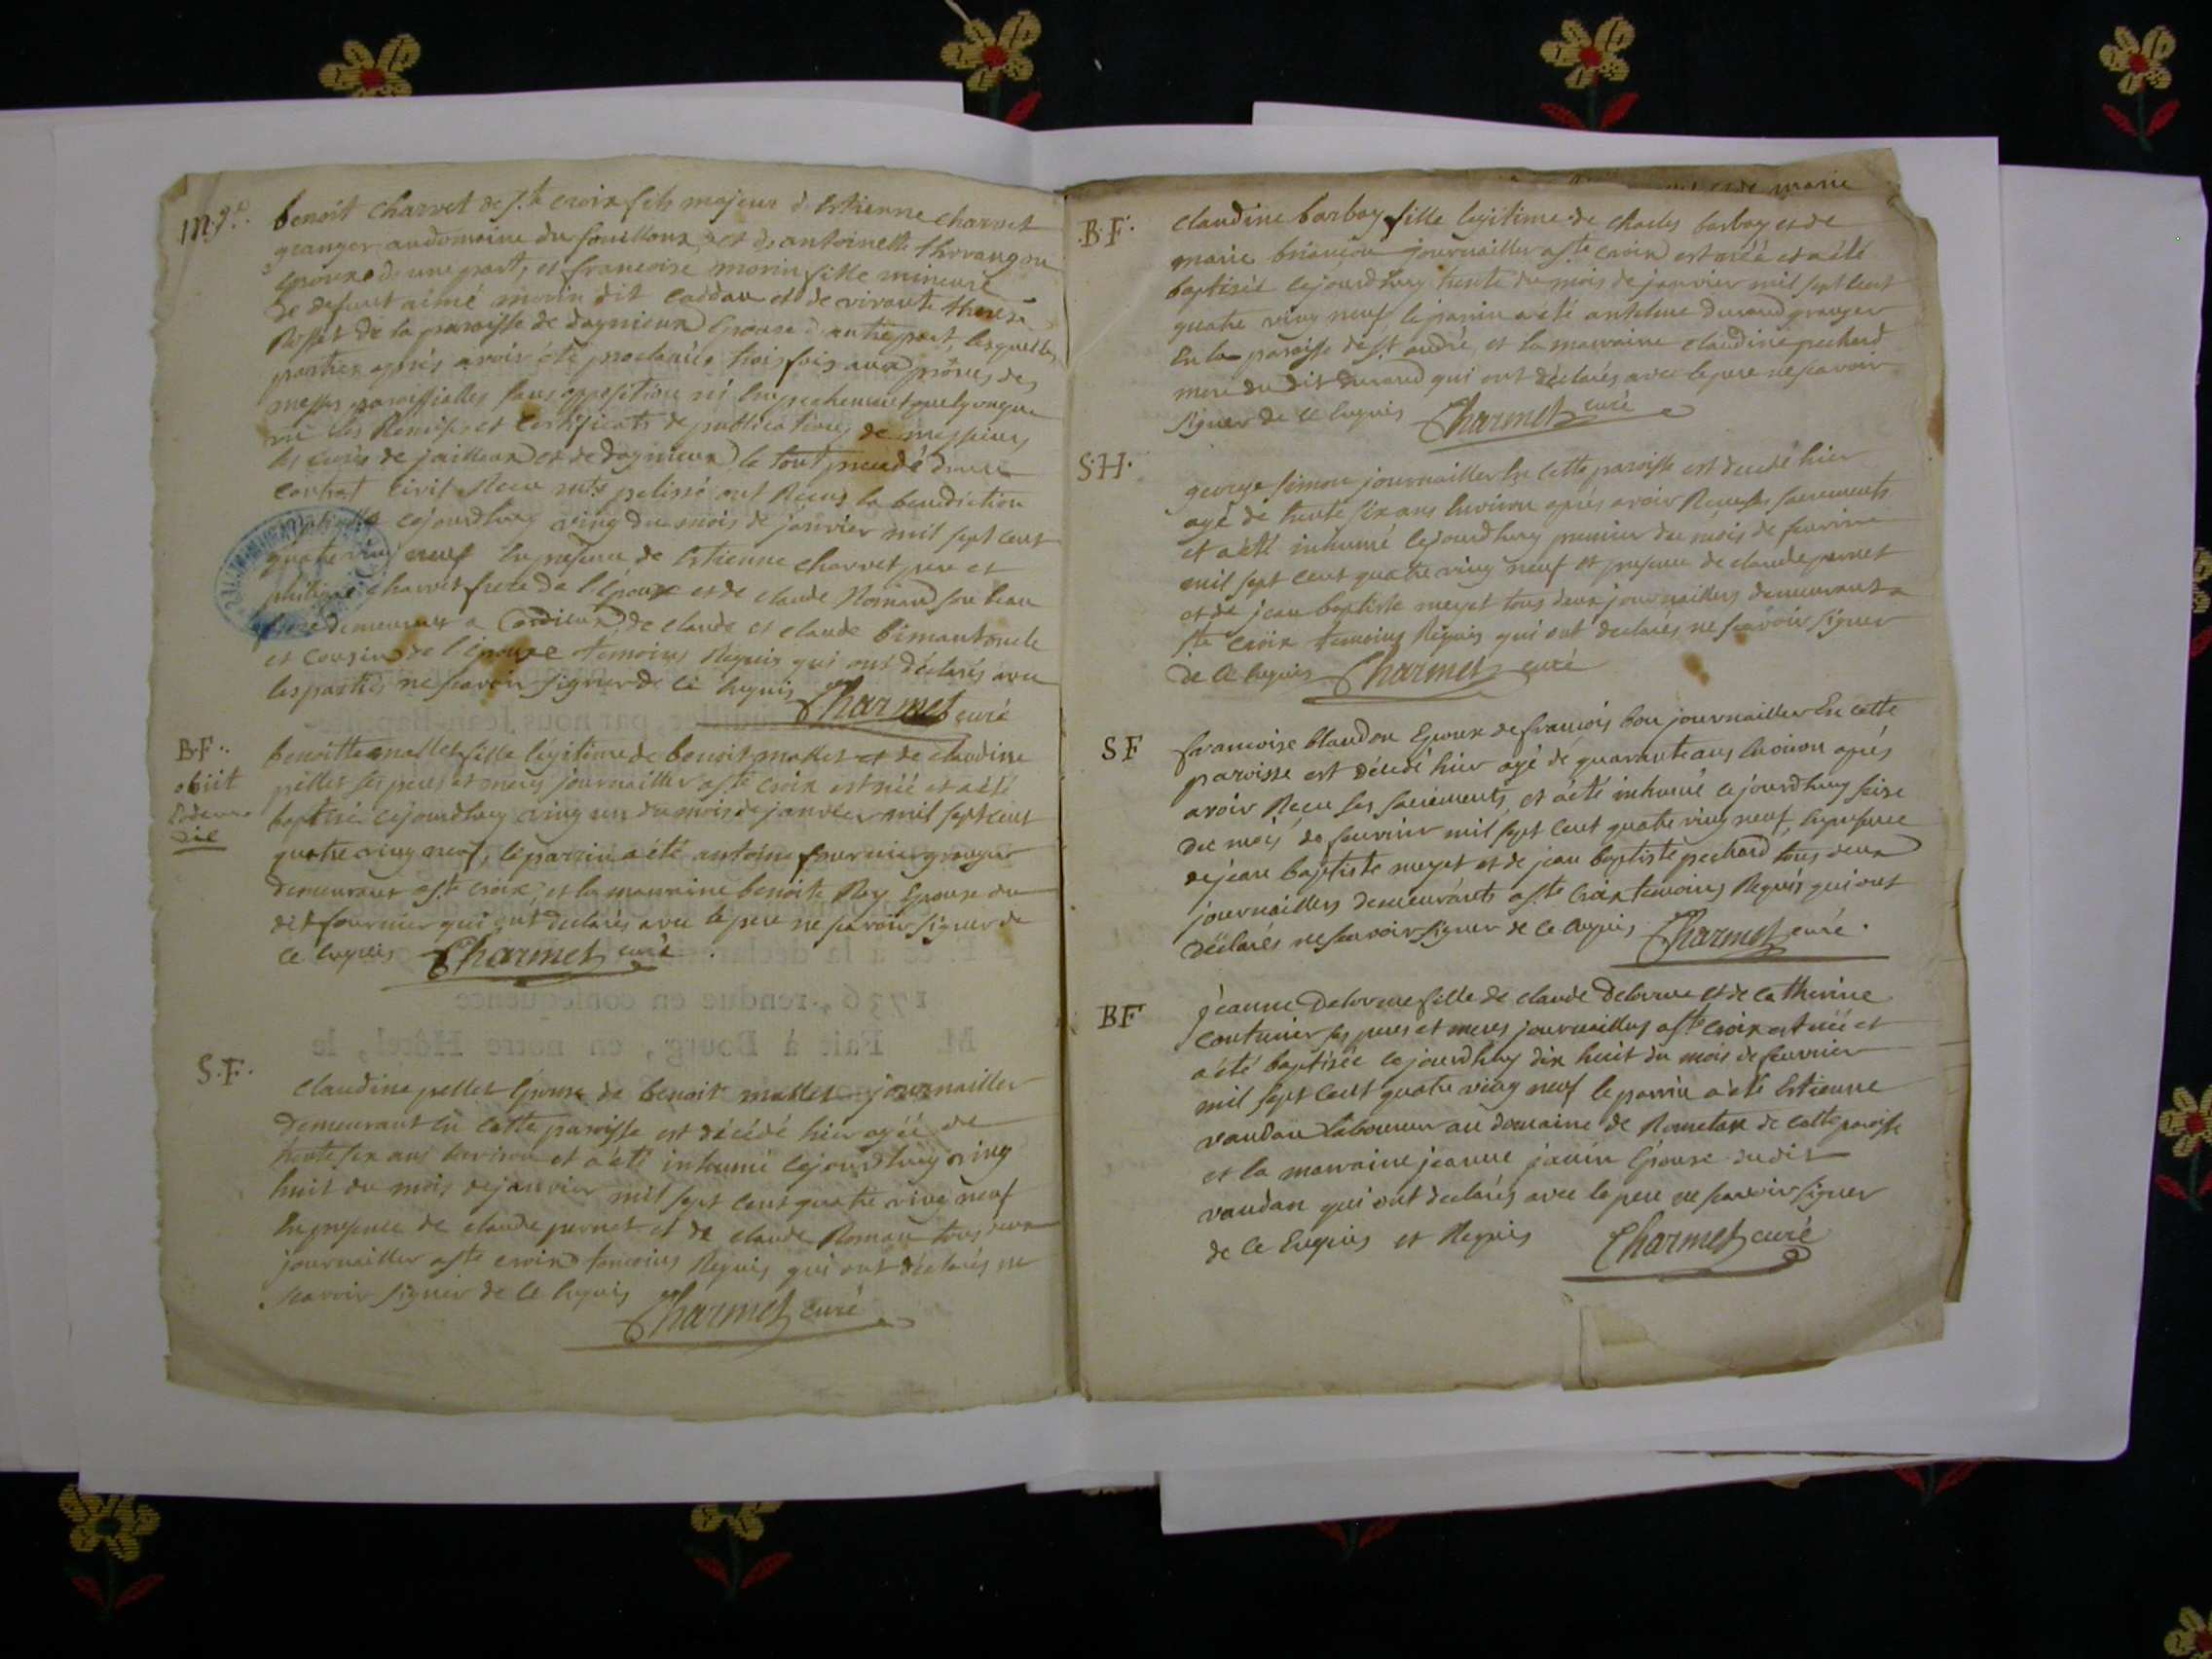 m.g.e. benoit charvet de s.te croix fils majeur d'estienne charvet
granger audomaine du fouilloux, et de antoinette
epoux de une part, et francoise morin fille mineure
de defunt aimé morin dit caddau et de vivante therese
Rosset de la paroisse de dagnieux epouse d'autre part, lesquelles
parties aprés avoir été proclamées trois fois aux prônes des
messes paroissialles sans opposition ni empechement quelqonque
vu les Remises et certificats de publications de messieurs
les curés de jailleux et de dagnieux le tout precedé d'un
contrat civil Recu mtre pelissé ont Recus la benediction
nuptialle cejourdhuy ving du mois de janvier mil sept cent
quatre ving neuf en presence de estienne charvet pere et
philippe charvet frere de l'epoux et de claude Romand son beau
frere demeurant a Cordieux, de claude et claude bimant oncle
et cousin de l'epouse temoins Requis qui ont déclarés avec
les parties ne scavoir signer de ce enquis Charmet curé
B.F.. benoitte mallet fille légitime de benoit mallet et de claudine
obiit pellet ses peres et meres journaillier a ste croix est néé et a été
eadem baptiséé cejourdhuy ving un du mois de janvier mil sept cent
die quatre ving neuf, le parrin a été antoine fournier granger
demeurant a ste croix, et la marraine benoite Rey Epouse du
dit fournier qui ont declarés avec le pere ne scavoir signer de
ce enquis Charmet curé
S.F. claudine pellet Epouse de benoit mallet journaillier
demeurant en cette paroisse est décédé hier agéé de
trente six ans environ et a été inhumé cejourdhuy ving
huit du mois de janvier mil sept cent quatre ving neuf
en presence de claude pernet et de claude Romand tous deux
journaillier a ste croix temoins Requis qui ont déclarés ne
scavoir signer de ce enquis Charmet curé
1736, rendue en conséquence
M. Fait à Bourg, en notre Hôtel, le
B.F. claudine barbay fille legitime de charles barbay et de
marie briancon journaillier a ste croix est néé et a été
baptiséé cejourdhuy trente du mois de janvier mil sept cent
quatre ving neuf le parrin a été antelme durand granger
En la paroisse de st andré, et la marraine claudine pechard
mere du dit durand qui ont déclarés avec le pere ne scavoir
signer de ce enquis Charmet curé
S.H. george simon journaillier En cette paroisse est decedé hier
agé de trente six ans environ aprés avoir Recu ses sacrements
et a été inhumé cejourdhuy premier du mois de fevrier
mil sept cent quatre ving neuf en presence de claude pernet
et de jean baptiste meyet tous deux journailliers demeurant a
ste croix temoins Requis qui ont declarés ne scavoir signer
de ce enquis Charmet curé
SF francoise blandon Epouse de francois bon journaillier En cette
paroisse est décedé hier agé de quarante ans environ aprés
avoir Recu ses sacrements, et a été inhumé cejourdhuy seize
du mois de fevrier mil sept cent quatre ving neuf, en presence
de jean baptiste meyet et de jean baptiste pechard tous deux
journailliers demeurants a ste croix temoins Requis qui ont
déclarés ne scavoir signer de ce enquis Charmet curé.
BF jeanne Delorme fille de claude Delorme et de catherine
couturier ses peres et meres journailliers a ste croix est néé et
a été baptiséé cejourdhuy dix huit du mois de fevrier
mil sept cent quatre ving neuf le parrin a été Estienne
vaudan laboureur au domaine de Rometan de cette paroisse
et la marraine jeanne janin Epouse du dit
vaudan qui ont declarés avec le pere ne scavoir signer
de ce Enquis et Requis Charmet curé